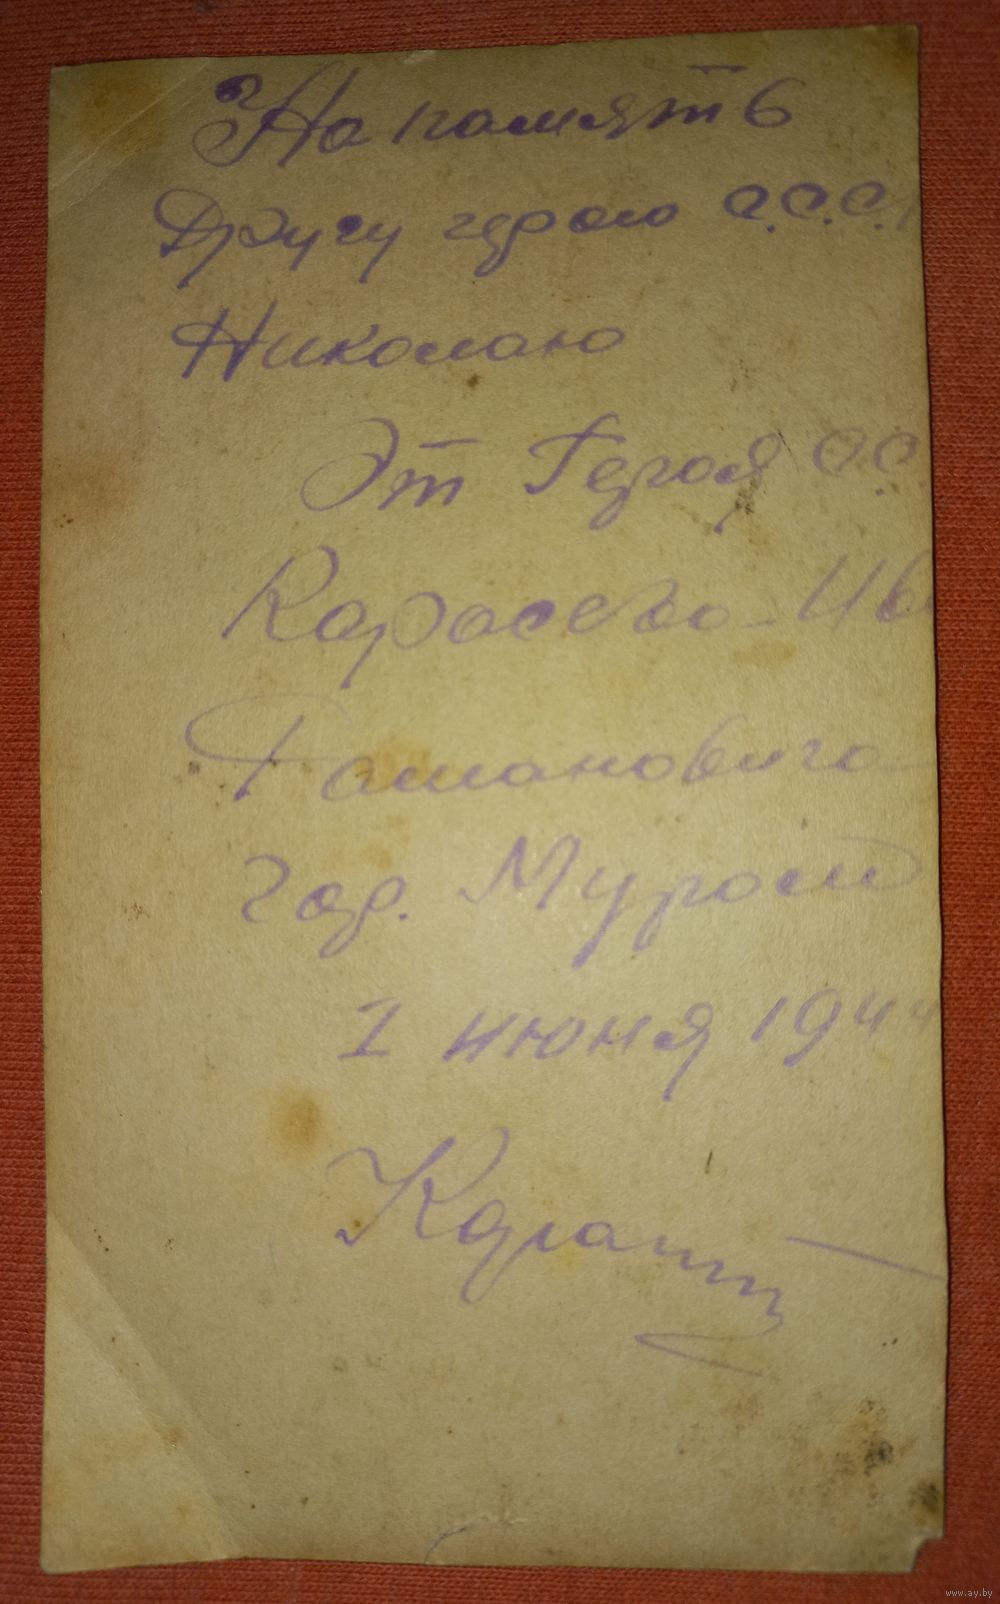 На память
Другу герою С.С.С.
Николаю
Эт Героя С.С.
Карасева Ив
Романовича
гор. Муром
1 июня 1944
www.ay.by